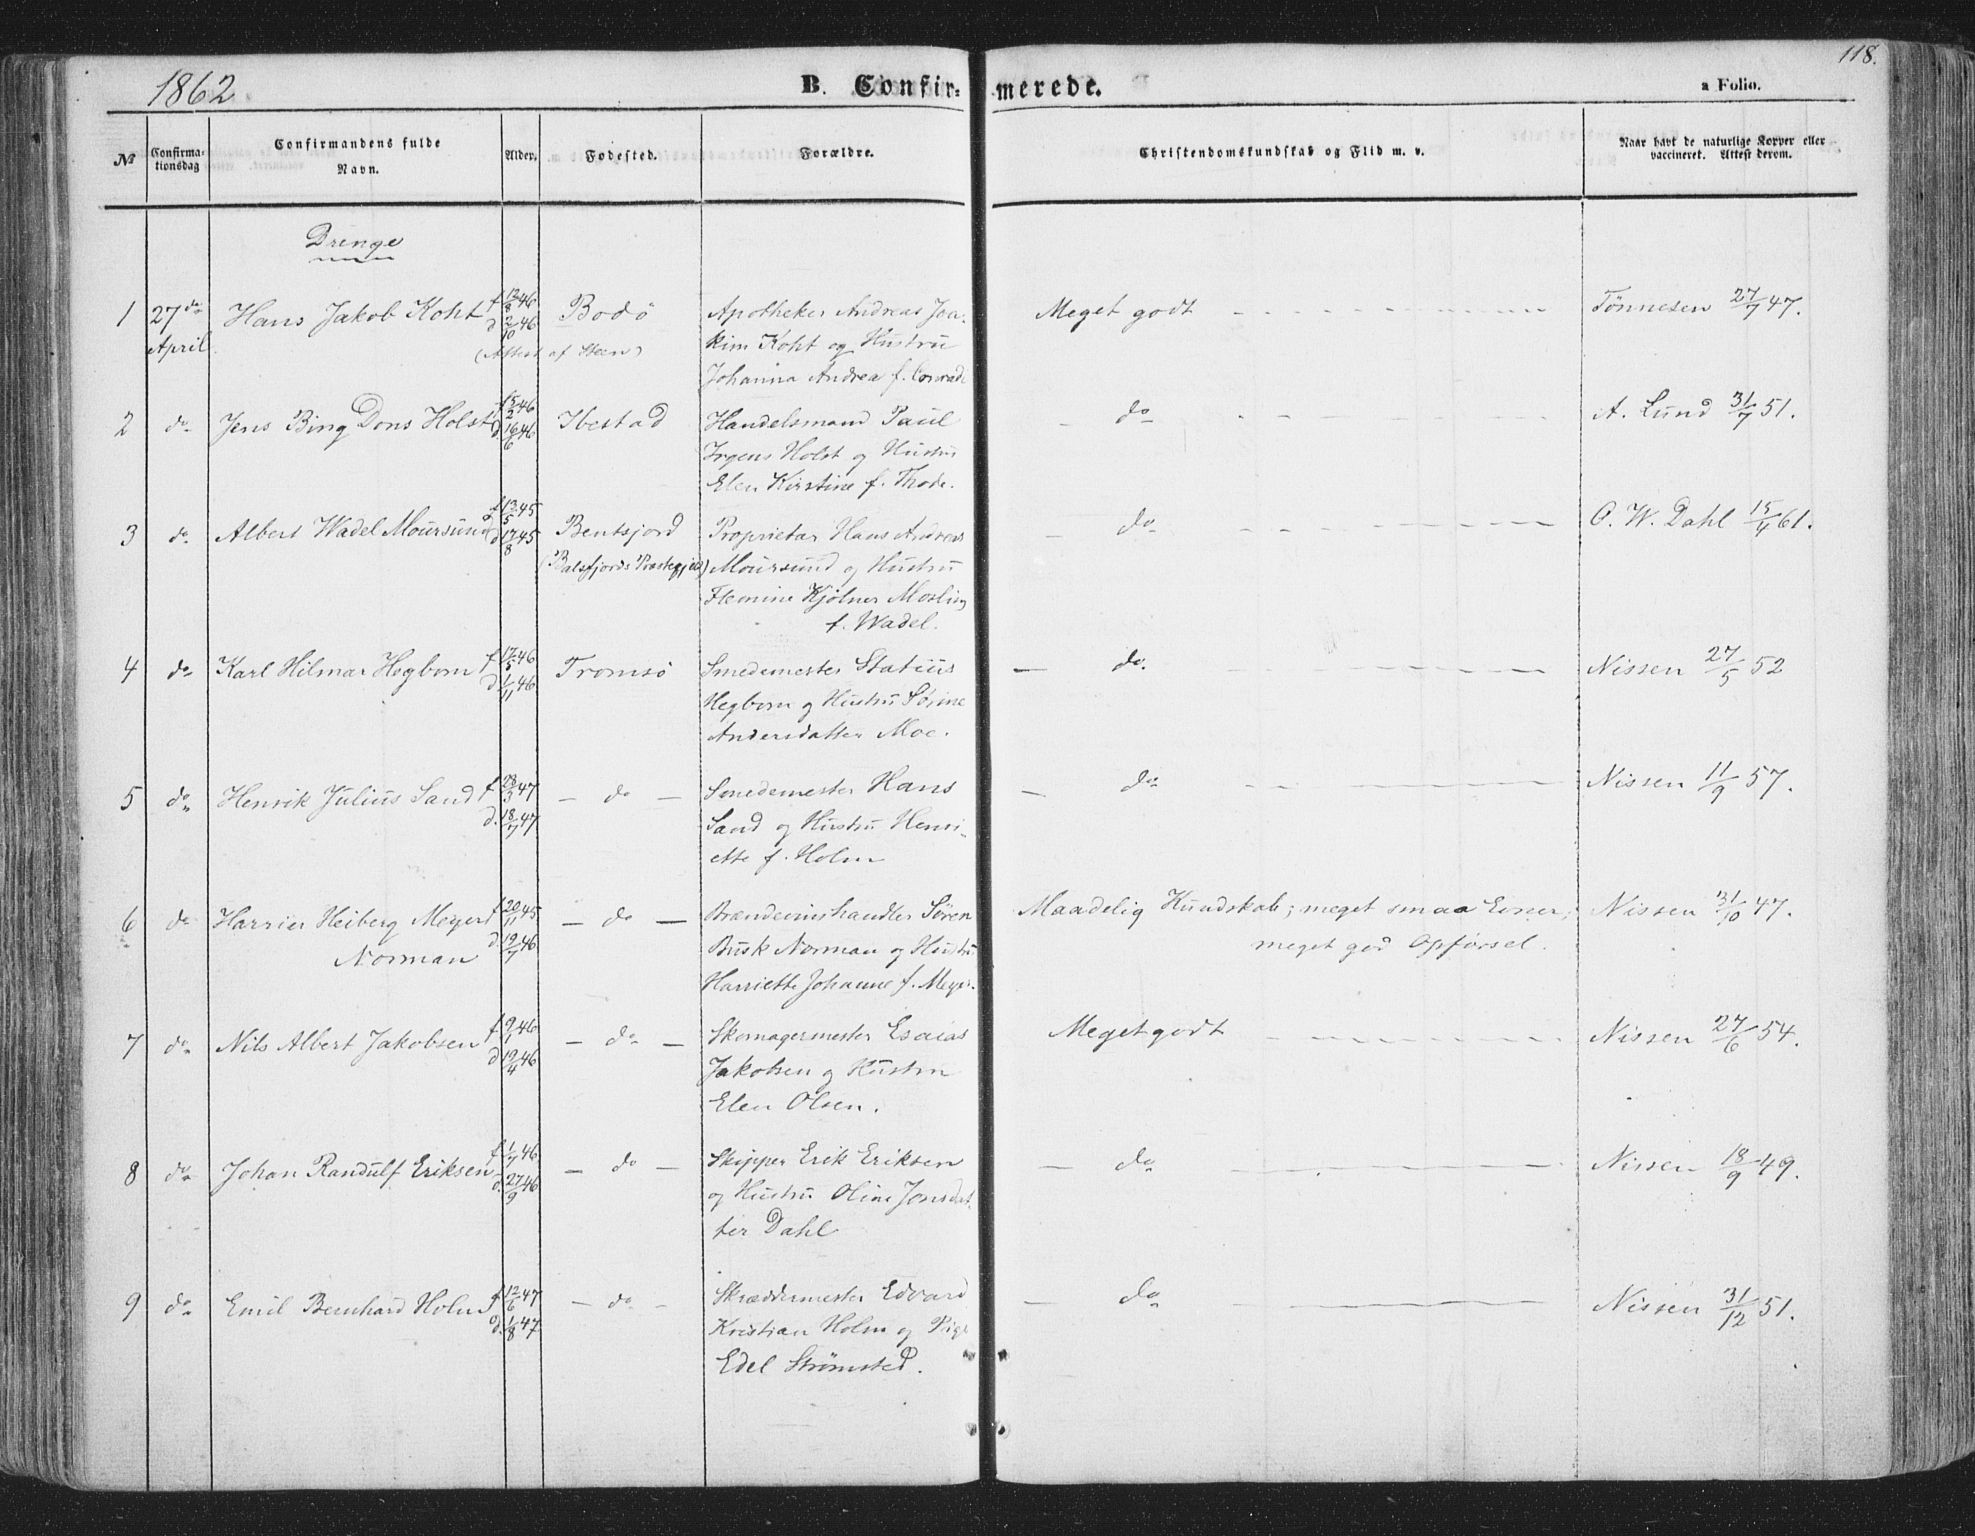 1862
B. Confir=merede.
118.
a Folio.
№
Confirmationsdag
Confirmandens fulde Navn.
Alder.
Fødested.
Forældre.
Christendomskundskab og Flid m. v.
Naar havt de naturlige Kopper eller vaccineret. Attest derom.
Drenge
1 27de April Hans Jakob Koht f 12/8 46 d 2/10 46 Bodö Apotheker Andreas Joa- Meget godt Tönnesen 27/7 47.
kim Koht og Hustru
(Attest af Steen)
Johanna Andrea f. Conradi
2 do Jens Bing Dons Holst f 15/2 46 d. 16/6 46 Ibestad Handelsmand Paul do A. Lund 31/7 51.
Irgens Holst og Hustru
Elen Kirstine f. Thode.
3 do Albert Wadel Moursund f 13/5 45 d 17/8 45 Bentsjord Proprietær Hans Andreas do O. W. Dahl 15/4 61.
(Balsfjords Præstegjeld) Moursund og Hustru
Kjölner
f. Wadel.
4 do Karl Hilmar Hegbom f 17/5 46 d 1/11 46 Tromsö Smedemester Statius do. Nissen 27/5 52
Hegbom og Hustru Sörine
Andersdatter Moe.
5 do Henrik Julius Sand f 28/3 47 d. 18/7 47 – do – Smedemester Hans do Nissen 11/9 57.
Sand og Hustru Henri-
ette f. Holm
6 do Harries Heiberg Meyer f 20/11 45 d. 19/7 46 – do – Brændevinshandler Sören Maadelig Kundskab; meget smaa Evner; Nissen 31/10 47.
Norman Busk Norman og Hustru meget god Opförsel.
Harriette Johanne f. Meyer.
7 do Nils Albert Jakobsen f 9/1 46 d 19/4 46 – do – Skomagermester Esaias Meget godt Nissen 27/6 54.
Jakobsen og Hustru
Elen Olsen.
8 do Johan Randulf Eriksen f 1/7 46. d. 27/9 46 – do – Skipper Erik Eriksen do Nissen 18/9 49.
og Hustru Oline Jonsdat-
ter Dahl
9 do Emil Bernhard Holm f 12/6 47 d. 1/8 47 – do – Skræddermester Edvard do Nissen 31/12 51.
Kristian Holm og Pige
Edel Strömsted.